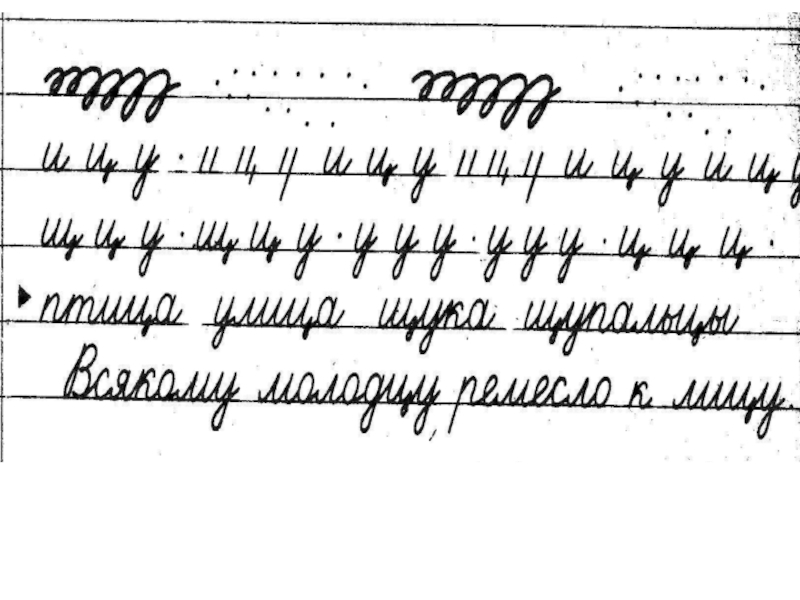 и ц у · и ц у и ц у и ц у и ц у и ц у
щ ц у · щ ц у · у у у · у у у · ц ц ц ·
птица улица щука щупальцы
Всякому молодцу ремесло к лицу.